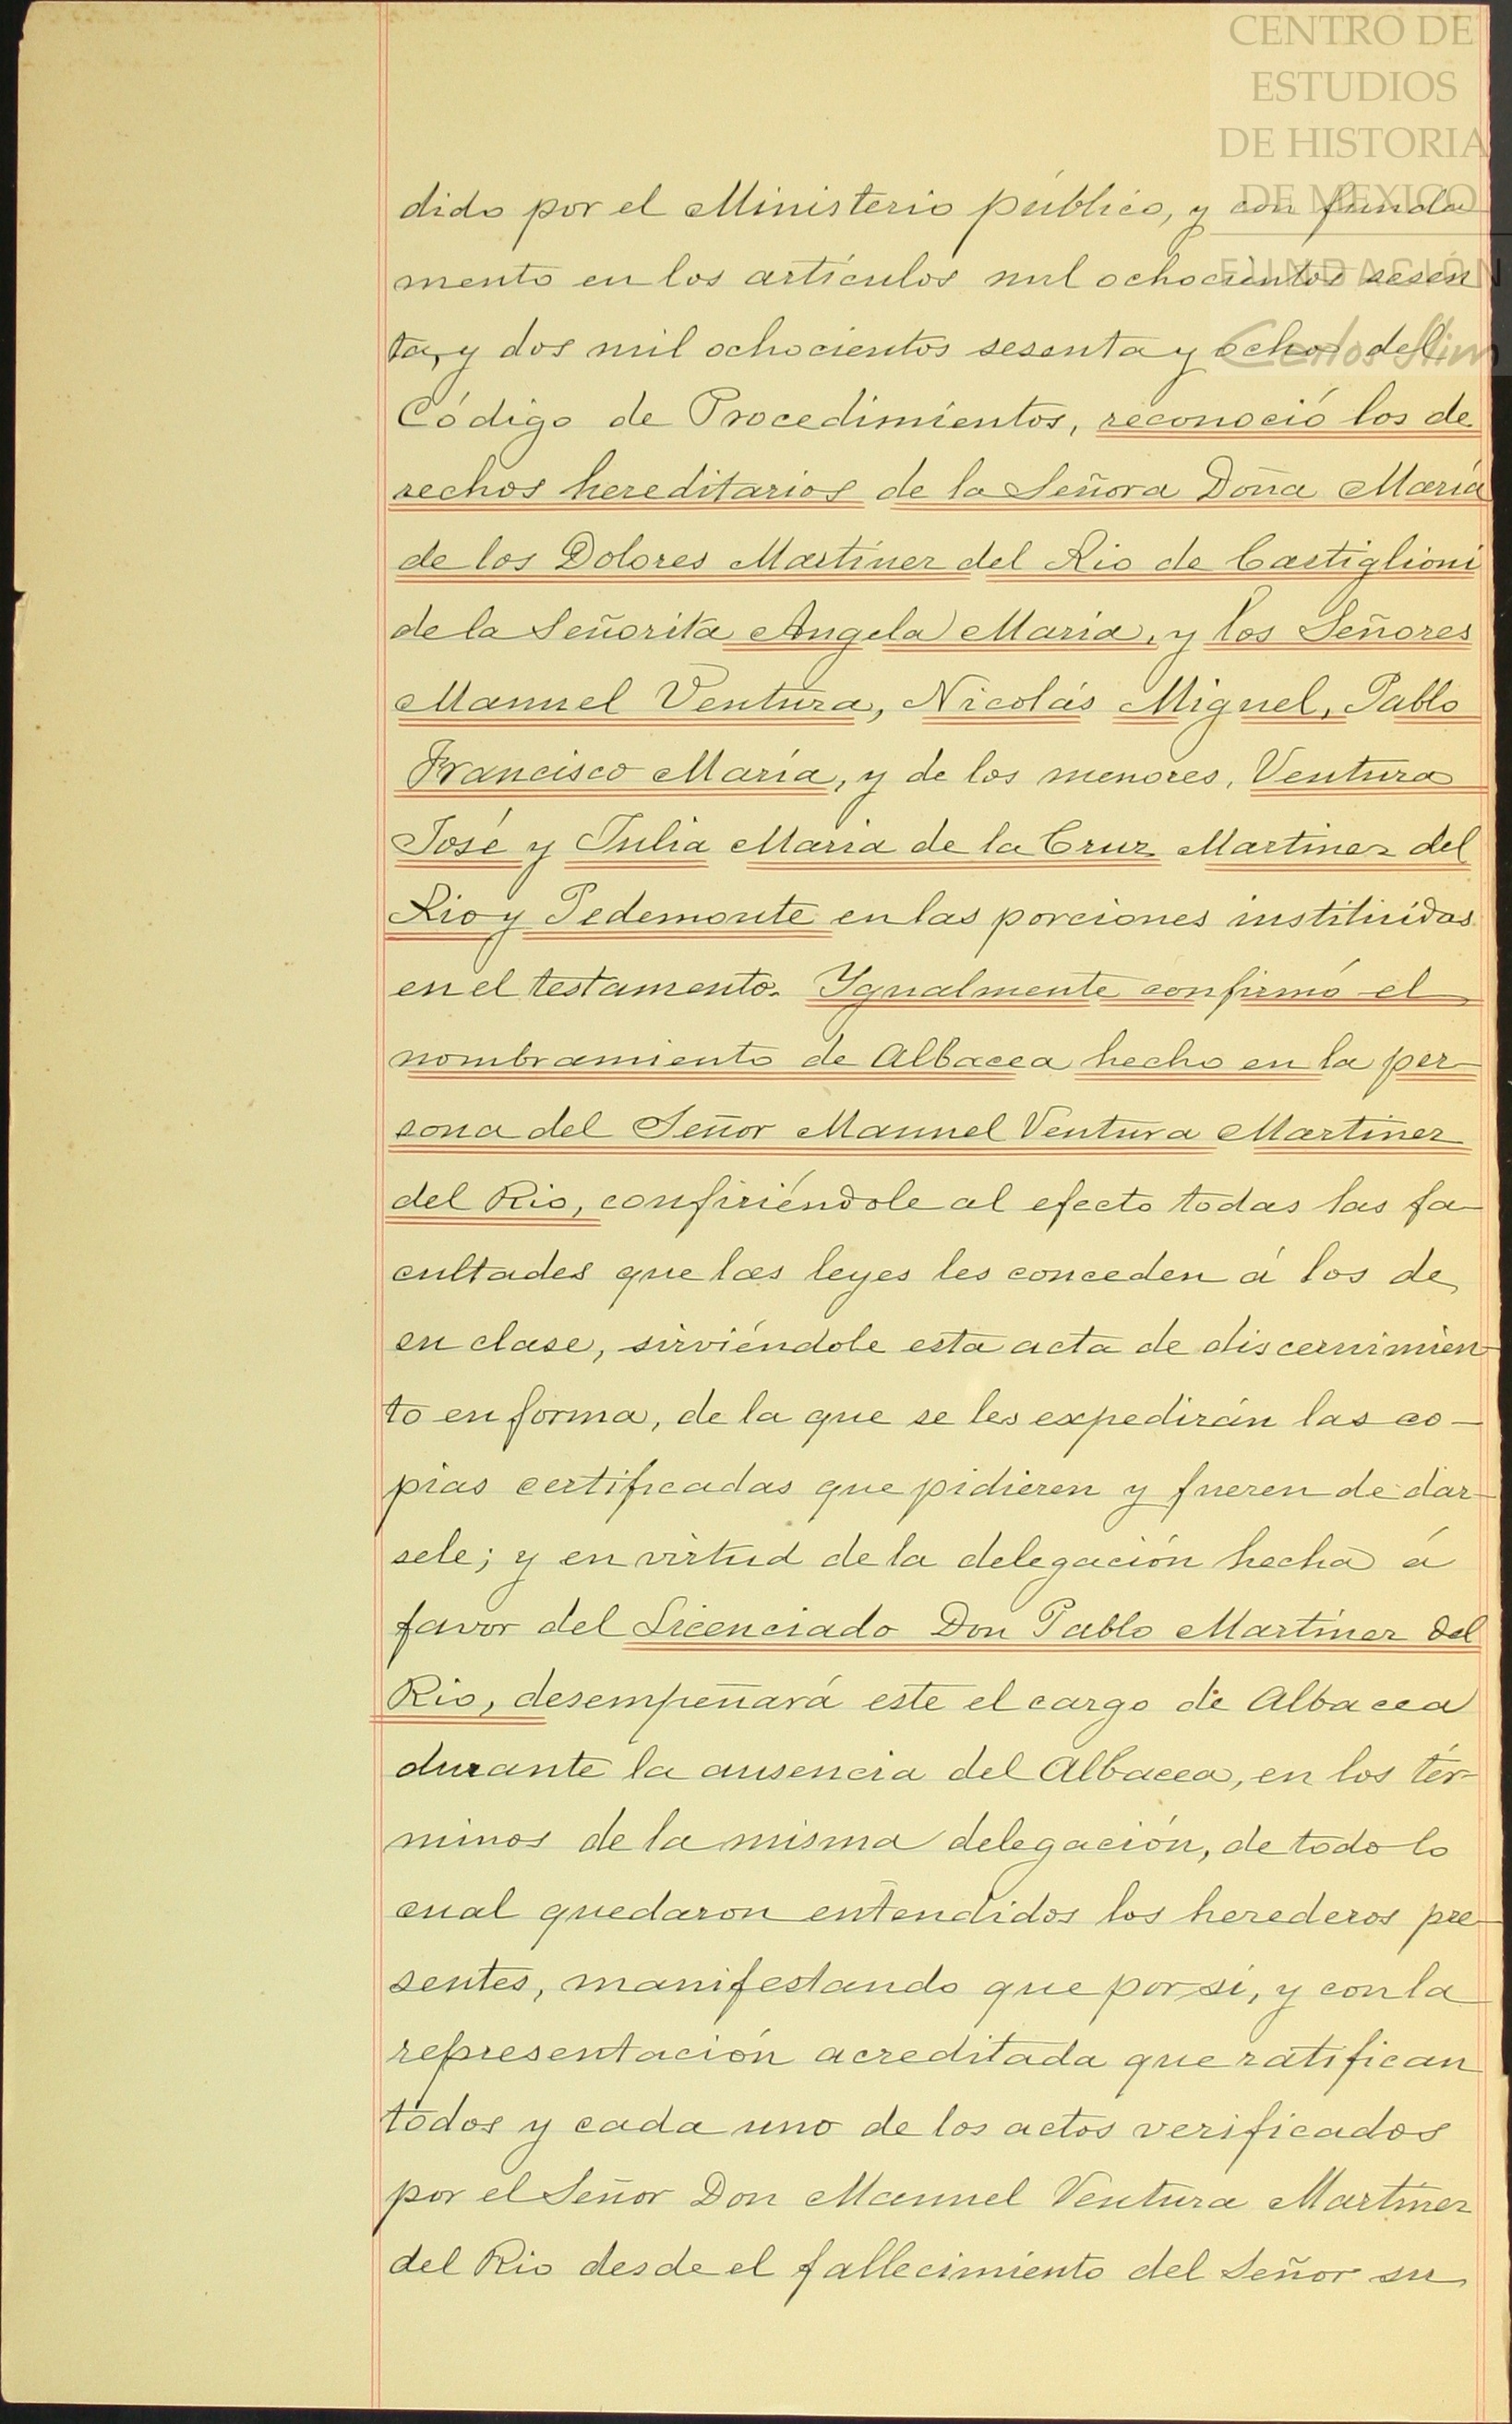 CENTRO DE
ESTUDIOS
DE HISTORIA
DE MEXICO
FUNDACIÓN
Carlos Slim
dido por el Ministerio público, y con funda
mento en los artículos mil ochocientos sesen
ta, y dos mil ochocientos sesenta y ocho del
Código de Procedimientos, reconoció los de
rechos hereditarios de la Señora Doña María
de los Dolores Martínez del Rio de Castiglioni
de la Señorita Angela Maria, y los Señores
Manuel Ventura, Nicolás Miguel, Pablo
Francisco María, y de los menores, Ventura
José y Julia Maria de la Cruz Martinez del
Rio y Pedemonte en las porciones instituidas
en el testamento. Ygualmente confirmó el
nombramiento de Albacea hecho en la per-
sona del Señor Manuel Ventura Martinez
del Rio, confiriéndole al efecto todas las fa-
cultades que las leyes les conceden á los de
su clase, sirviéndole esta acta de discernimien-
to en forma, de la que se les expedirán las co-
pias certificadas que pidieren y fueren de dar-
sele; y en virtud de la delegación hecha á
favor del Licenciado Don Pablo Martínez del
Rio, desempeñará este el cargo de Albacea
durante la ausencia del Albacea, en los tér-
minos de la misma delegación, de todo lo
cual quedaron entendidos los herederos pre-
sentes, manifestando que por si, y con la
representación acreditada que ratifican
todos y cada uno de los actos verificados
por el Señor Don Manuel Ventura Martínez
del Rio desde el fallecimiento del Señor su